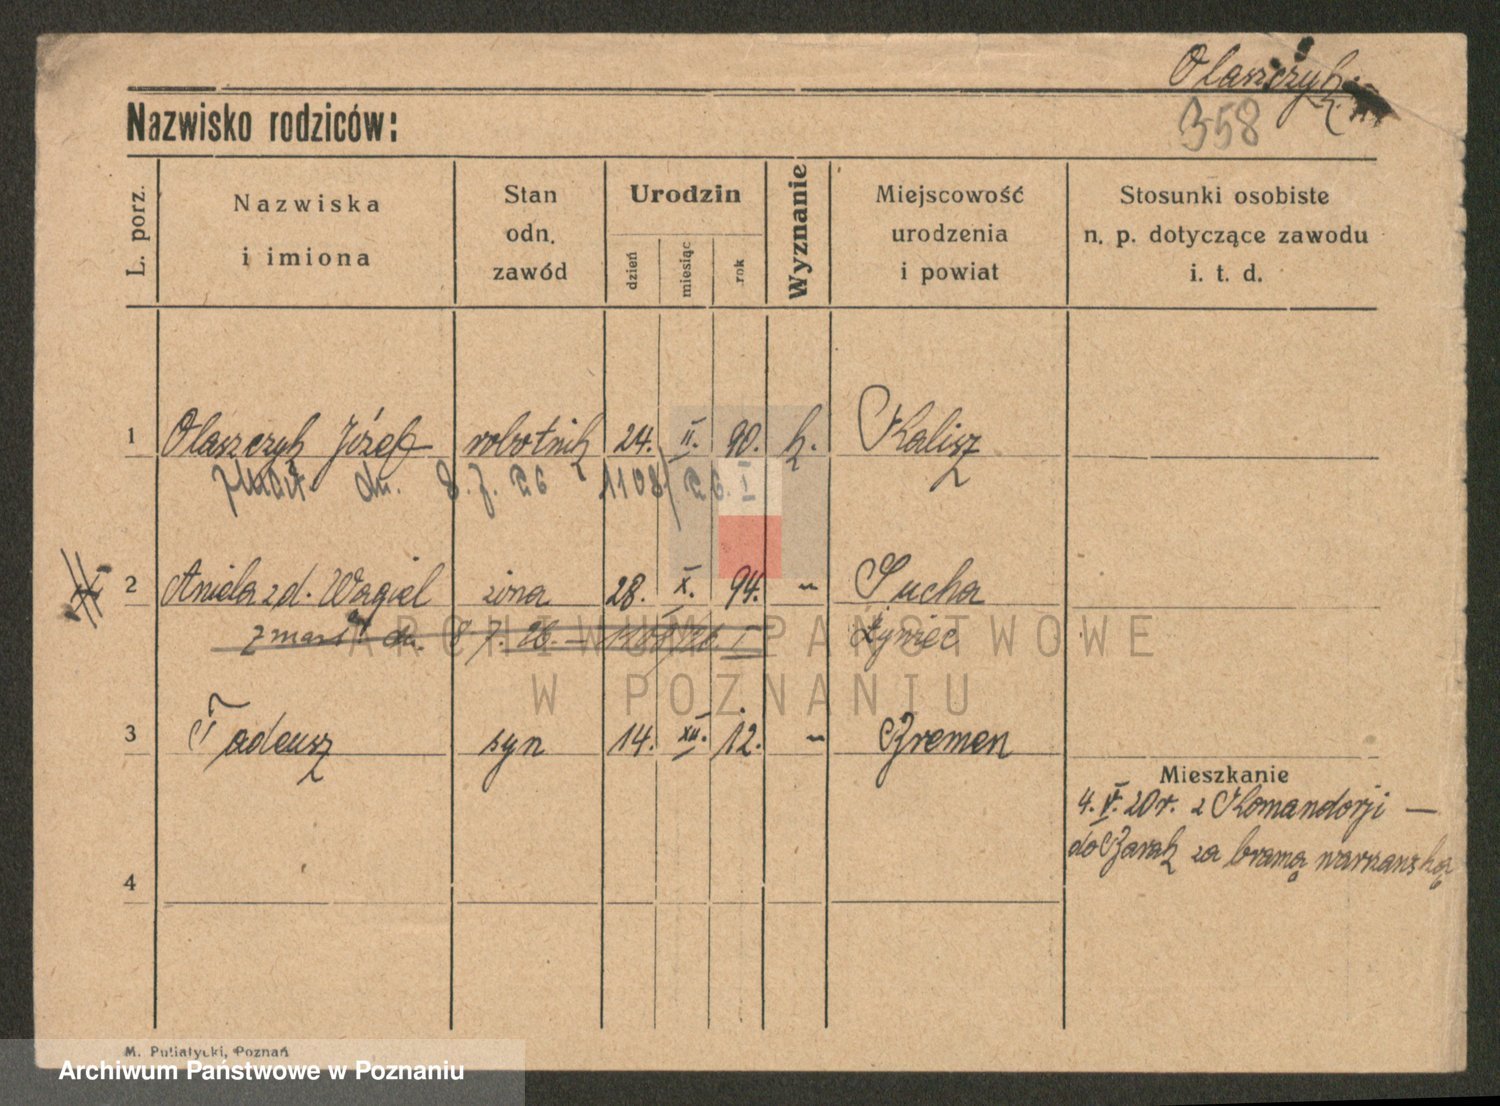 Olaszczyk
358
Nazwisko rodziców:
L. porz.
Nazwiska
i imiona
Stan
odn.
zawód
Urodzin
dzień
miesiąc
rok
Wyznanie
Miejscowość
urodzenia
i powiat
Stosunki osobiste
n. p. dotyczące zawodu
i. t. d.
1 Olaszczyk Józef robotnik 24. II. 90. k. Kalisz
zmarł. dn. 8. 7. 26 1108/26. I
2 Aniela zd. Wągiel żona 28. X. 94. " Sucha
zmarł dn. 8 7. 26. – 1108/26. I Żywiec
3 Tadeusz syn 14. XII. 12. " Bremen
Mieszkanie
4. V. 20 r. z Komandorji —
do Barak za bramą warszawską
4
M. Putiatycki, Poznań
ARCHIWUM PAŃSTWOWE
W POZNANIU
Archiwum Państwowe w Poznaniu